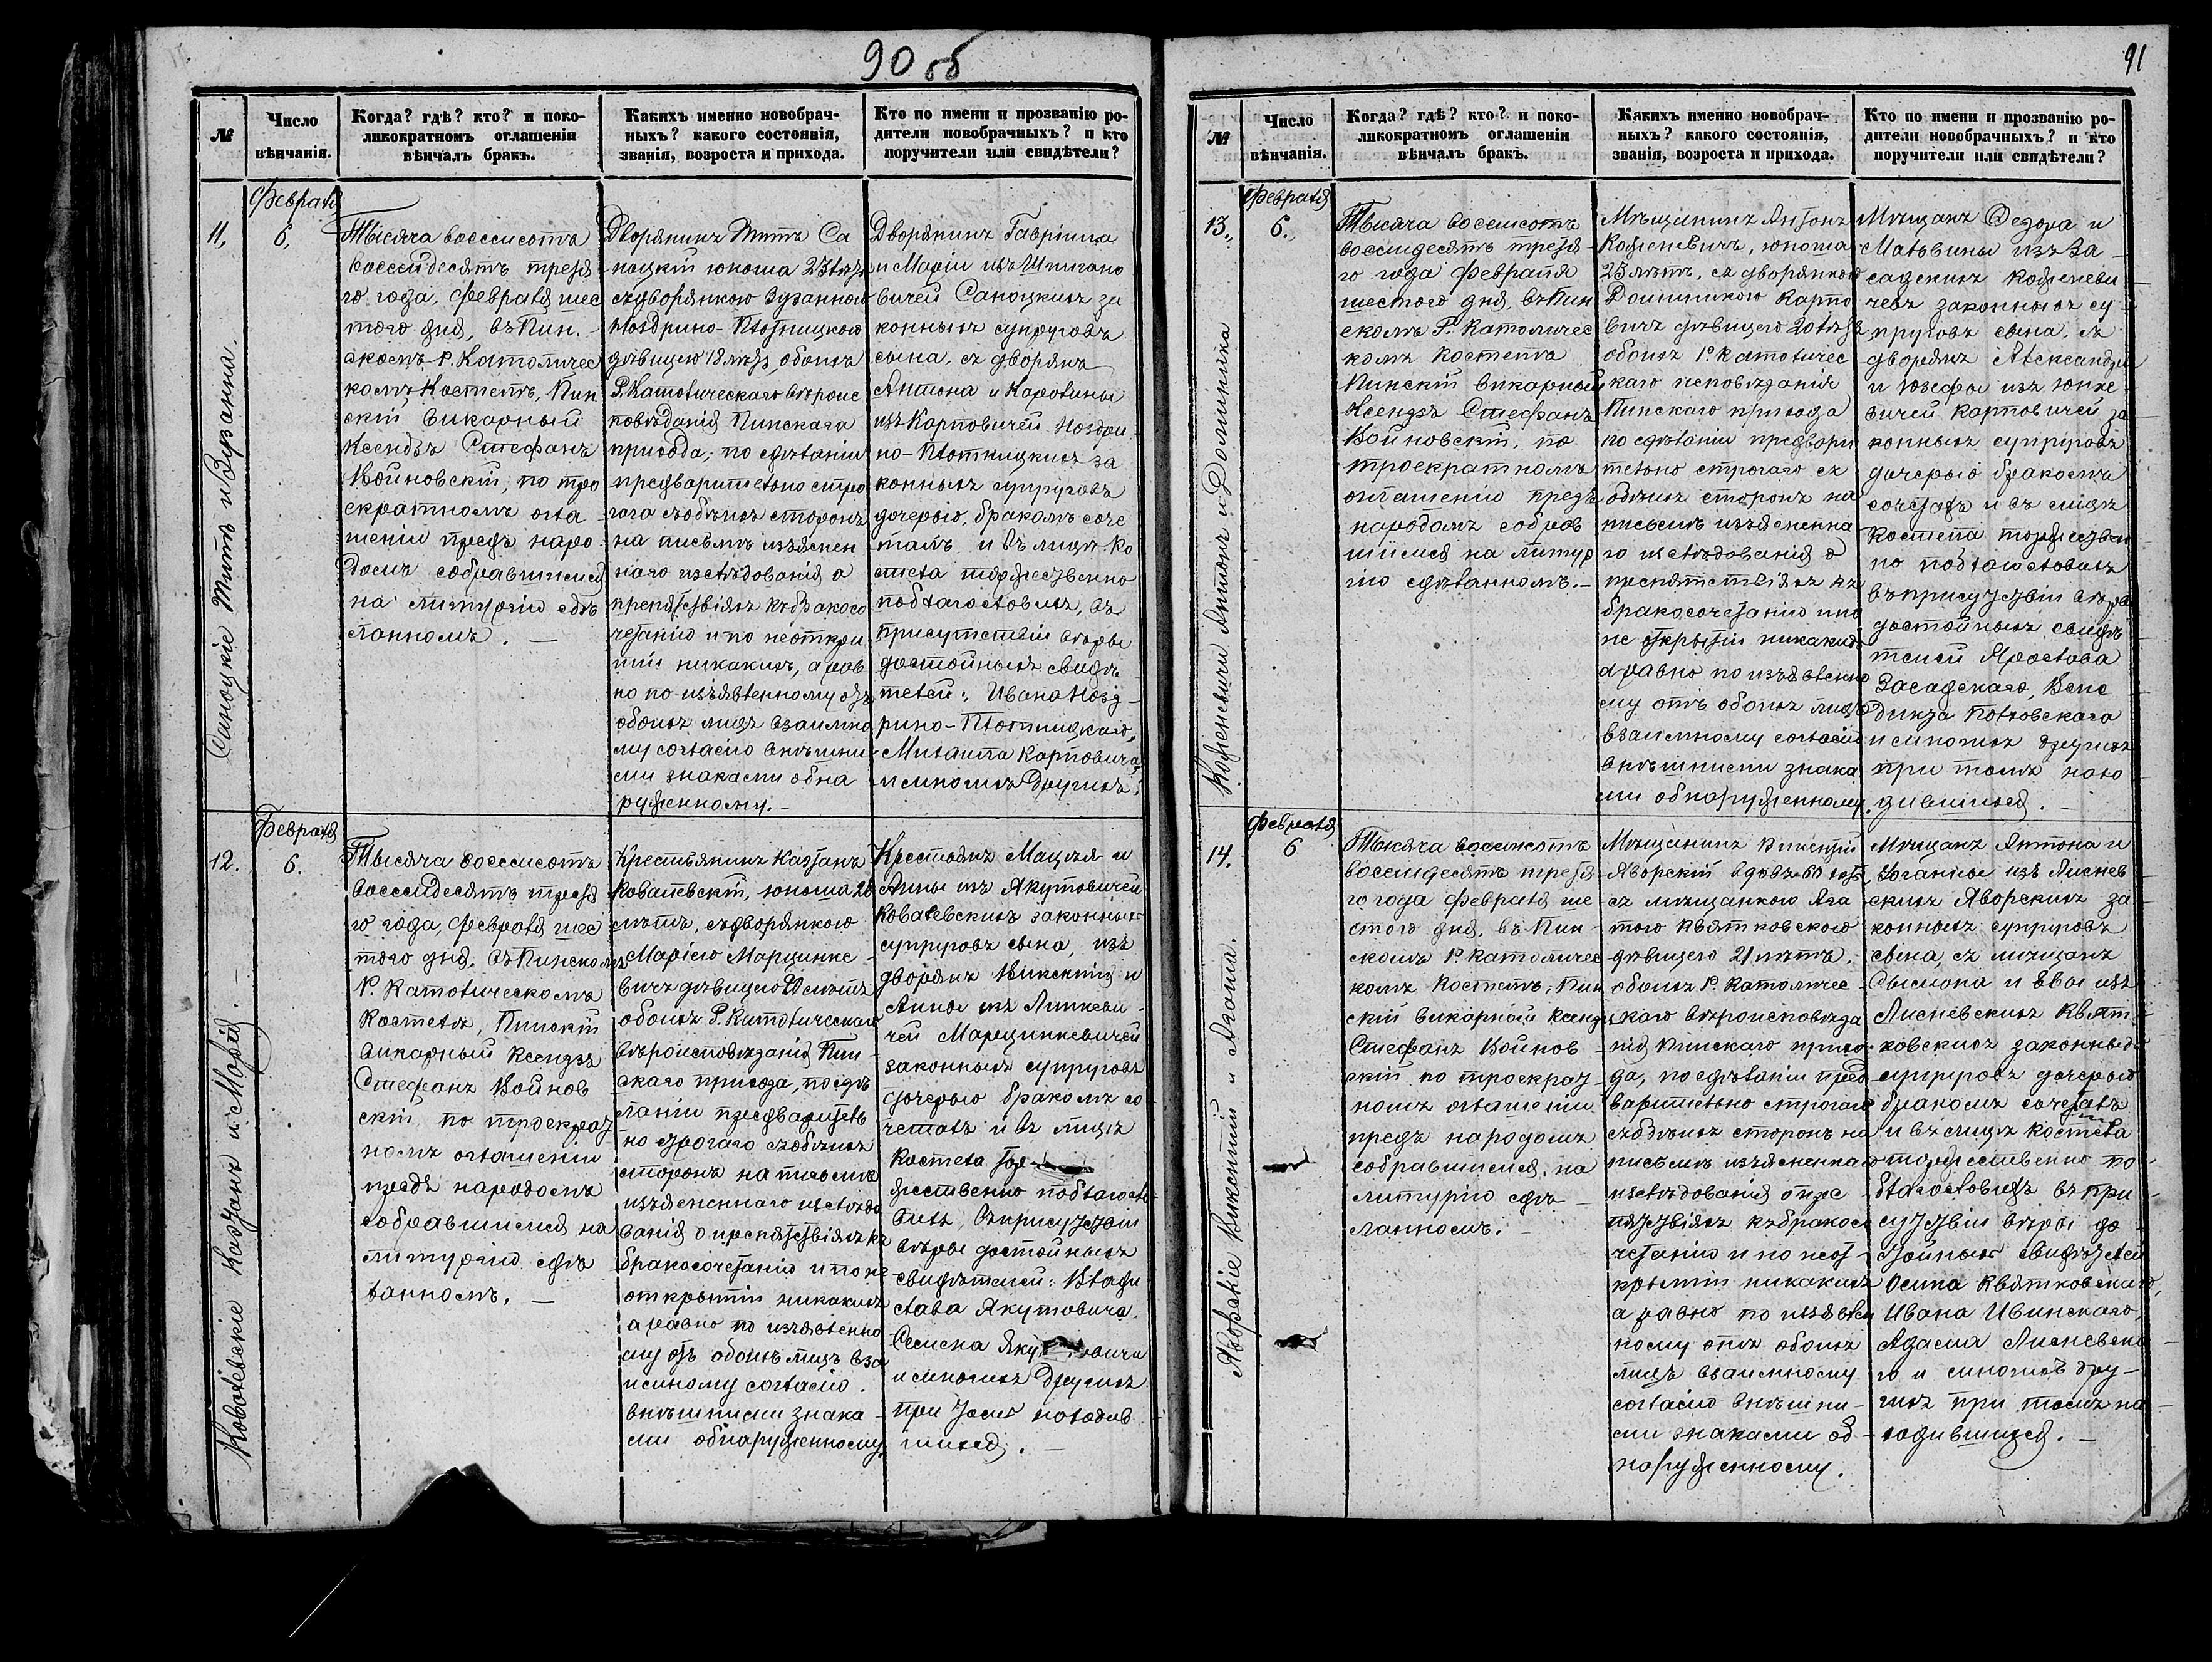 90 об
№
Число
вѣнчанія.
Когда? гдѣ? кто? и поко-
ликократномъ оглашеніи
вѣнчалъ бракъ.
Какихъ именно новобрач-
ныхъ? какого состоянія,
званія, возроста и прихода.
Кто по имени и прозванію ро-
дители новобрачныхъ? и кто
поручители или свидѣтели?
11.
Саноцкіе Титъ и Зузанна.
Февраля
6.
Тысяча восемсотъ
восемдесятъ третья
го года, февраля шес
того дня, въ Пин-
скомъ Р. Католичес
комъ Костелѣ, Пин
скій викарный
Ксендзъ Стефанъ
Войновскій, по тро
екратномъ огла
шеніи предъ наро
домъ собравшимся
на литургію сдѣ
ланномъ. —
Дворянинъ Титъ Са
ноцкій юноша 23 лѣтъ
съ дворянкою Зузанною
Ноздрино-Плотницкою
дѣвицею 18 лѣтъ, обоихъ
Р. Католическаго вѣроис
повѣданія Пинскаго
прихода; по сдѣланіи
предварительно стро
гаго съ обѣихъ сторонъ
на письмѣ изъяснен
наго изслѣдованія о
препятствіяхъ къ бракосо
четанію и по неоткры
тіи никакихъ, а рав
но по изъявленному отъ
обоихъ лицъ взаимно
му согласію внѣшни
ми знаками обна
руженному. —
Дворянинъ Гавріила
и Маріи изъ Шпигано
вичей Саноцкихъ за
конныхъ супруговъ
сына, съ дворянъ
Антона и Каролины
изъ Карповичей Ноздри
но-Плотницкихъ за
конныхъ супруговъ
дочерью, бракомъ соче
талъ и въ лицѣ Ко
стела торжественно
поблагословилъ, въ
присутствіи вѣры
достойныхъ свидѣ
телей: Ивана Нозд-
рино-Плотницкаго,
Михаила Карповича
и многихъ другихъ.
12.
Ковалевскіе Каэтанъ и Марія. —
Февраля
6.
Тысяча восемсотъ
восемдесятъ третья
го года, февраля шес
того дня, въ Пинскомъ
Р. Католическомъ
Костелѣ, Пинскій
викарный Ксендзъ
Стефанъ Войнов
скій, по троекрат
номъ оглашеніи
предъ народомъ
собравшимся на
литургію сдѣ
ланномъ. —
Крестьянинъ Каэтанъ
Ковалевскій, юноша 28
лѣтъ, съ дворянкою
Маріею Марцинке-
вичъ дѣвицею 20 лѣтъ
обоихъ Р. Католическаго
вѣроисповѣданія Пин-
скаго прихода, по сдѣ
ланіи предваритель
но строгаго съ обѣихъ
сторонъ на письмѣ
изъясненнаго изслѣдо
ванія о препятствіяхъ къ
бракосочетанію и по не
открытіи никакихъ
а равно по изъявленно
му отъ обоихъ лицъ вза
имному согласію
внѣшними знака-
ми обнаруженному
Крестьянъ Мацѣя и
Анны изъ Якутовичей
Ковалевскихъ законныхъ
супруговъ сына, изъ
дворянъ Викентія и
Анны изъ Линкеви-
чей Марцинкевичей
законныхъ супруговъ
дочерью бракомъ со-
четалъ и въ лицѣ
Костела тор
жественно поблагосло-
вилъ, въ присутствіи
вѣры достойныхъ
свидѣтелей: Влади
слава Якутовича,
и многихъ другихъ
при томъ находив
шихся. —
91
№
Число
вѣнчанія.
Когда? гдѣ? кто? и поко-
ликократномъ оглашеніи
вѣнчалъ бракъ.
Какихъ именно новобрач-
ныхъ? какого состоянія,
званія, возроста и прихода.
Кто по имени и прозванію ро-
дители новобрачныхъ? и кто
поручители или свидѣтели?
13.
Коженевичи Антонъ и Доминика
Февраля
6.
Тысяча восемсотъ
восемдесятъ третья-
го года февраля
шестого дня, въ Пин
скомъ Р. Католичес
комъ Костелѣ
Пинскій викарный
Ксендзъ Стефанъ
Войновскій, по
троекратномъ
оглашеніи предъ
народомъ собрав
шимся на литур
гію сдѣланномъ. —
Мѣщанинъ Антонъ
Коженевичъ, юноша
25 лѣтъ, съ дворянкою
Доминикою Карпо
вичъ дѣвицею 20 лѣтъ
обоихъ Р. Католичес
каго исповѣданія
Пинскаго прихода
по сдѣланіи предвари
тельно строгаго съ
обѣихъ сторонъ на
письмѣ изъясненна
го изслѣдованія о
препятствіяхъ къ
бракосочетанію и по
не открытіи никакихъ
а равно по изъявленно
му отъ обоихъ лицъ
взаимному согласію
внѣшними знака
ми обнаруженному.
Мѣщанъ Ѳедора и
Матвины изъ За-
садскихъ Коженеви
чевъ законныхъ су-
пруговъ сына, съ
дворянъ Александра
и Юзефы изъ Юхне-
вичей Карповичей за
конныхъ супруговъ
дочерью бракомъ
сочеталъ и въ лицѣ
Костела торжествен
но поблагословилъ
въ присутствіи вѣры
достойныхъ свидѣ
телей Ярослава
Засадскаго, Бене
дикта Полховскаго
и многихъ другихъ
при томъ нахо-
дившихся. —
14.
Яворскіе Викентій и Агата.
Февраля
6
Тысяча восемсотъ
восемдесятъ третья
го года февраля ше
стого дня, въ Пин-
скомъ Р. Католичес
комъ Костелѣ, Пин
скій викарный Ксендзъ
Стефанъ Войнов-
скій по троекрат-
номъ оглашеніи
предъ народомъ
собравшимся, на
литургію сдѣ-
ланномъ. —
Мѣщанинъ Викентій
Яворскій вдовъ 60 лѣтъ,
съ мѣщанкою Ага
тою Квятковскою
дѣвицею 21 лѣтъ,
обоихъ Р. Католичес-
каго вѣроисповѣда
нія Пинскаго прихо-
да, по сдѣланіи пред
варительно строгаго
съ обѣихъ сторонъ на
письмѣ изъясненнаго
изслѣдованія о пре
пятствіяхъ къ бракосо
четанію и по неот-
крытіи никакихъ
а равно по изъявлен
ному отъ обоихъ
лицъ взаимному
согласію внѣшни-
ми знаками об-
наруженному.
Мѣщанъ Антона и
Іоганны изъ Лиснев
скихъ Яворскихъ за-
конныхъ супруговъ
сына, съ мѣщанъ
Сымона и Евы изъ
Лисневскихъ Квят
ковскихъ законныхъ
супруговъ дочерью
бракомъ сочеталъ
и въ лицѣ Костела
торжественно по-
благословилъ въ при-
сутствіи вѣры до-
стойныхъ свидѣтелей
Осипа Квятковскаго,
Ивана Ивинскаго,
Адама Лисневска-
го и многихъ дру-
гихъ при томъ на-
ходившихся. —